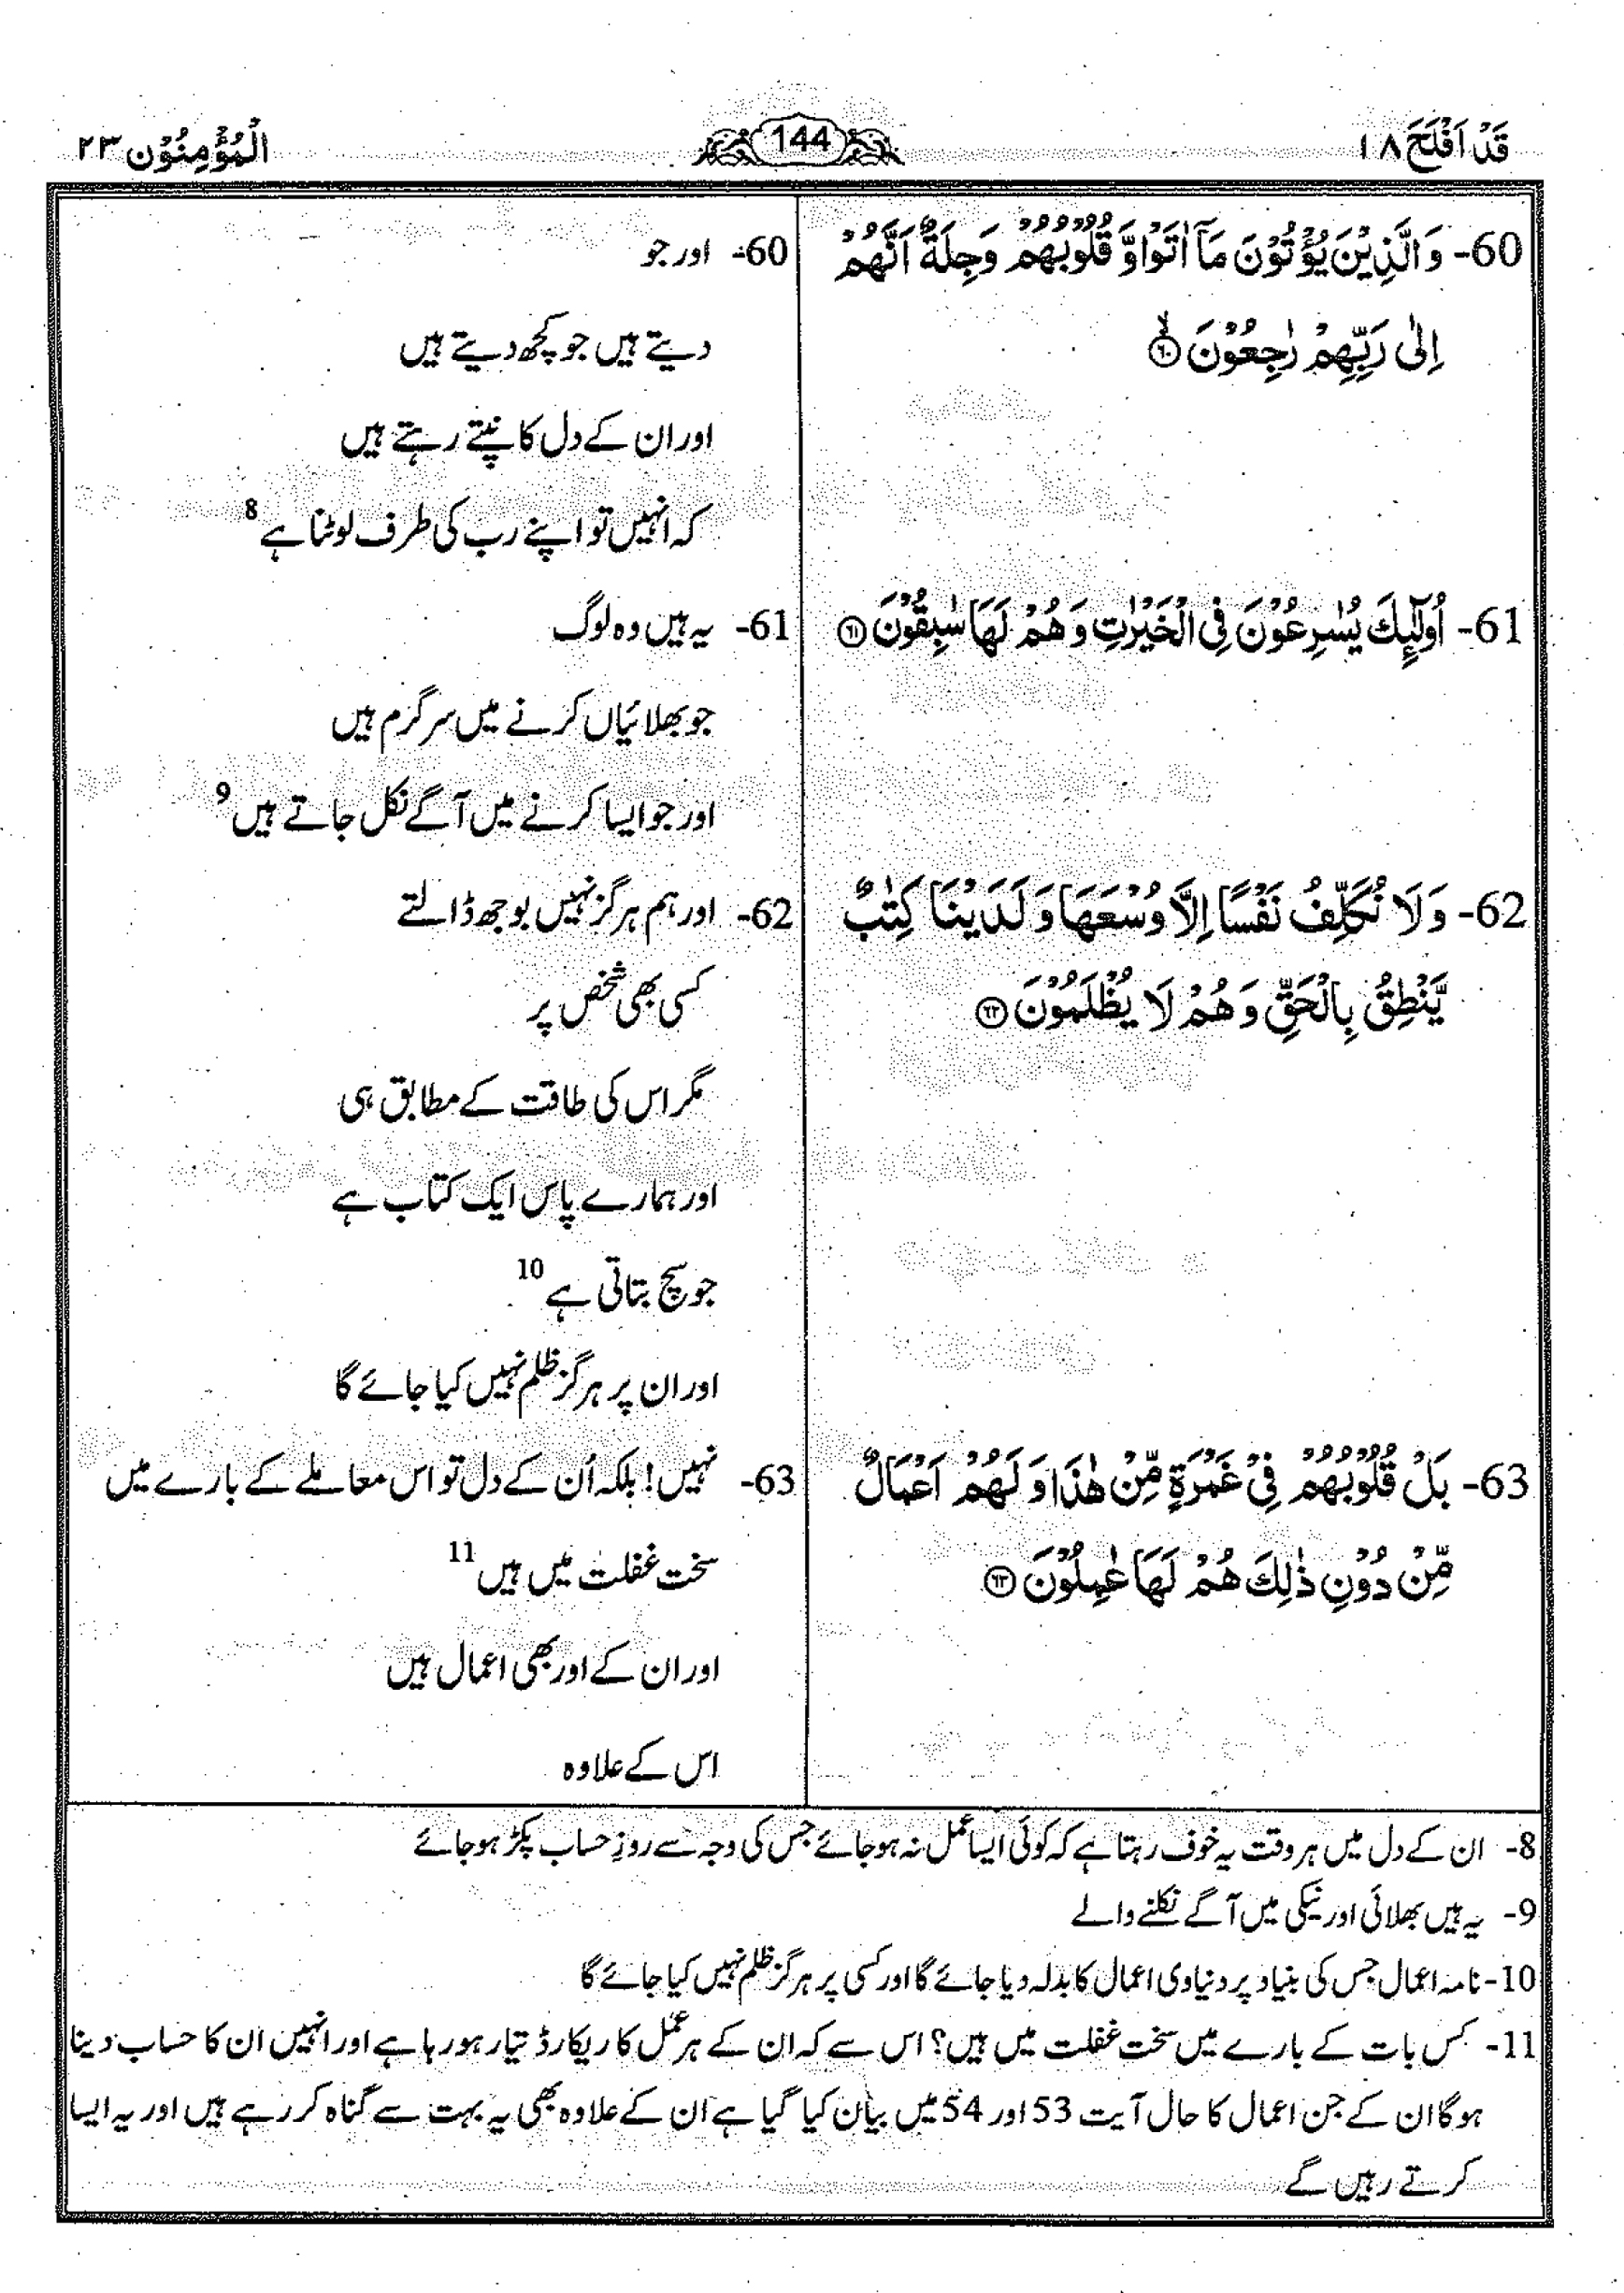 قَدْ اَفْلَحَ ١٨
144
الْمُؤْمِنُوْن ٢٣
60- وَ الَّذِيْنَ يُؤْتُوْنَ مَاۤ اٰتَوْا وَّ قُلُوْبُهُمْ وَجِلَةٌ اَنَّهُمْ
اِلٰى رَبِّهِمْ رٰجِعُوْنَ ۙ﴿٦٠﴾
61- اُولٰٓىِٕكَ يُسٰرِعُوْنَ فِی الْخَيْرٰتِ وَ هُمْ لَهَا سٰبِقُوْنَ ﴿٦١﴾
62- وَ لَا نُكَلِّفُ نَفْسًا اِلَّا وُسْعَهَا وَ لَدَيْنَا كِتٰبٌ
يَّنْطِقُ بِالْحَقِّ وَ هُمْ لَا يُظْلَمُوْنَ ﴿٦٢﴾
63- بَلْ قُلُوْبُهُمْ فِیْ غَمْرَةٍ مِّنْ هٰذَا وَ لَهُمْ اَعْمَالٌ
مِّنْ دُوْنِ ذٰلِكَ هُمْ لَهَا عٰمِلُوْنَ ﴿٦٣﴾
60- اور جو
دیتے ہیں جو کچھ دیتے ہیں
اور ان کے دل کانپتے رہتے ہیں
کہ انہیں تو اپنے رب کی طرف لوٹنا ہے 8
61- یہ ہیں وہ لوگ
جو بھلائیاں کرنے میں سرگرم ہیں
اور جو ایسا کرنے میں آگے نکل جاتے ہیں 9
62- اور ہم ہرگز نہیں بوجھ ڈالتے
کسی بھی شخص پر
مگر اس کی طاقت کے مطابق ہی
اور ہمارے پاس ایک کتاب ہے
جو سچ بتاتی ہے 10
اور ان پر ہرگز ظلم نہیں کیا جائے گا
63- نہیں! بلکہ اُن کے دل تو اس معاملے کے بارے میں
سخت غفلت میں ہیں 11
اور ان کے اور بھی اعمال ہیں
اس کے علاوہ
8- ان کے دل میں ہر وقت یہ خوف رہتا ہے کہ کوئی ایسا عمل نہ ہو جائے جس کی وجہ سے روزِ حساب پکڑ ہو جائے
9- یہ ہیں بھلائی اور نیکی میں آگے نکلنے والے
10- نامہ اعمال جس کی بنیاد پر دنیاوی اعمال کا بدلہ دیا جائے گا اور کسی پر ہرگز ظلم نہیں کیا جائے گا
11- کس بات کے بارے میں سخت غفلت میں ہیں؟ اس سے کہ ان کے ہر عمل کا ریکارڈ تیار ہو رہا ہے اور انہیں ان کا حساب دینا
ہو گا ان کے جن اعمال کا حال آیت 53 اور 54 میں بیان کیا گیا ہے ان کے علاوہ بھی یہ بہت سے گناہ کر رہے ہیں اور یہ ایسا
کرتے رہیں گے